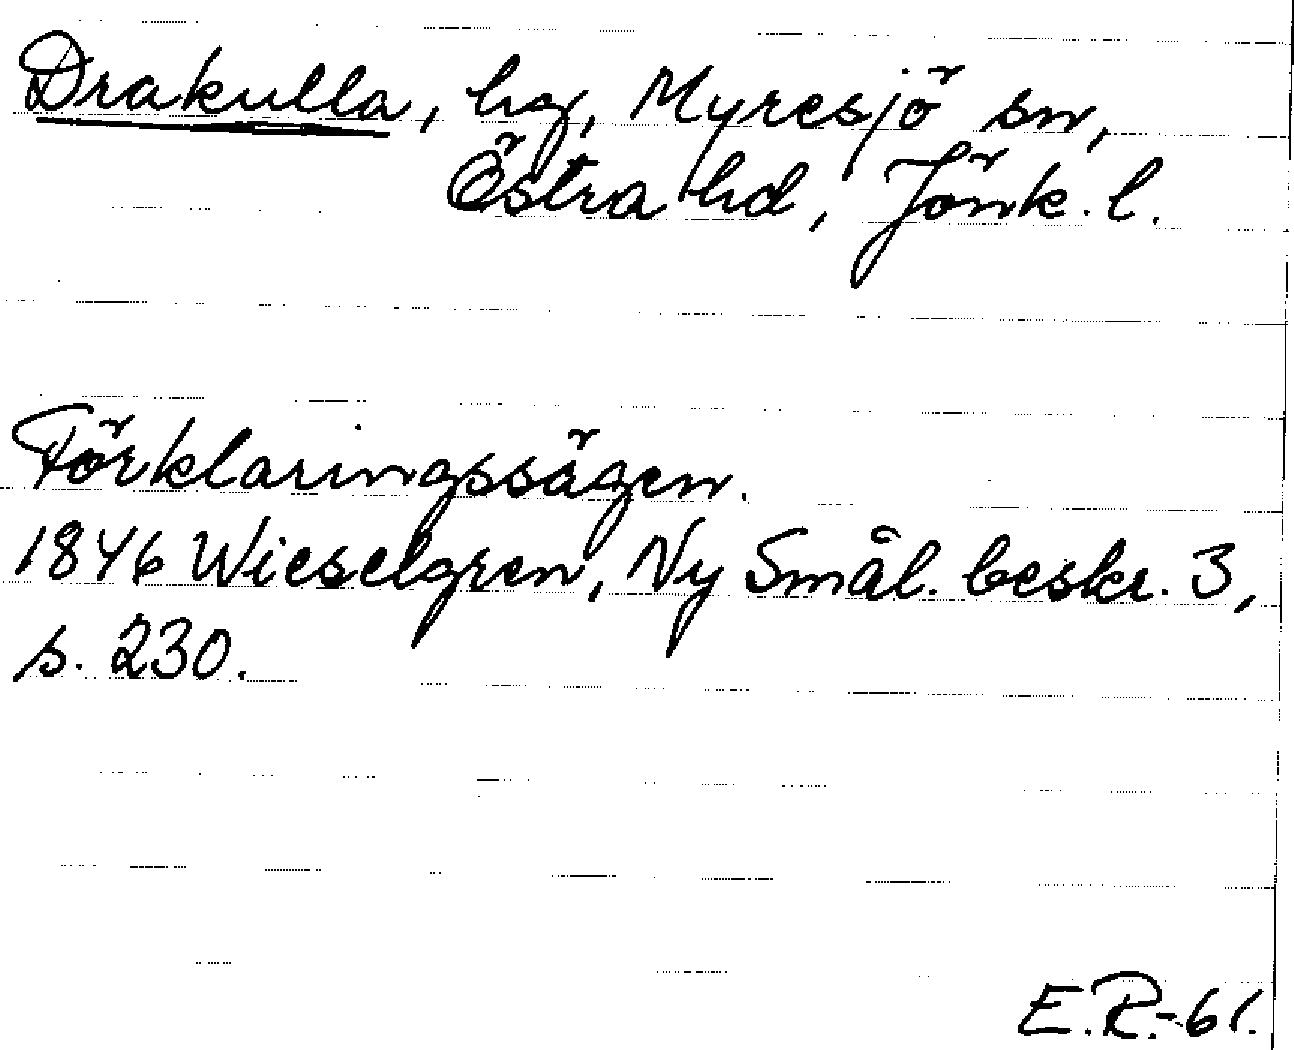 Drakulla, hg, Myresjö sn,
Östra hd, Jönk. l.
Förklaringssägen.
1846 Wieselgren, Ny Smål. beskr. 3,
s. 230.
E.R.-61.